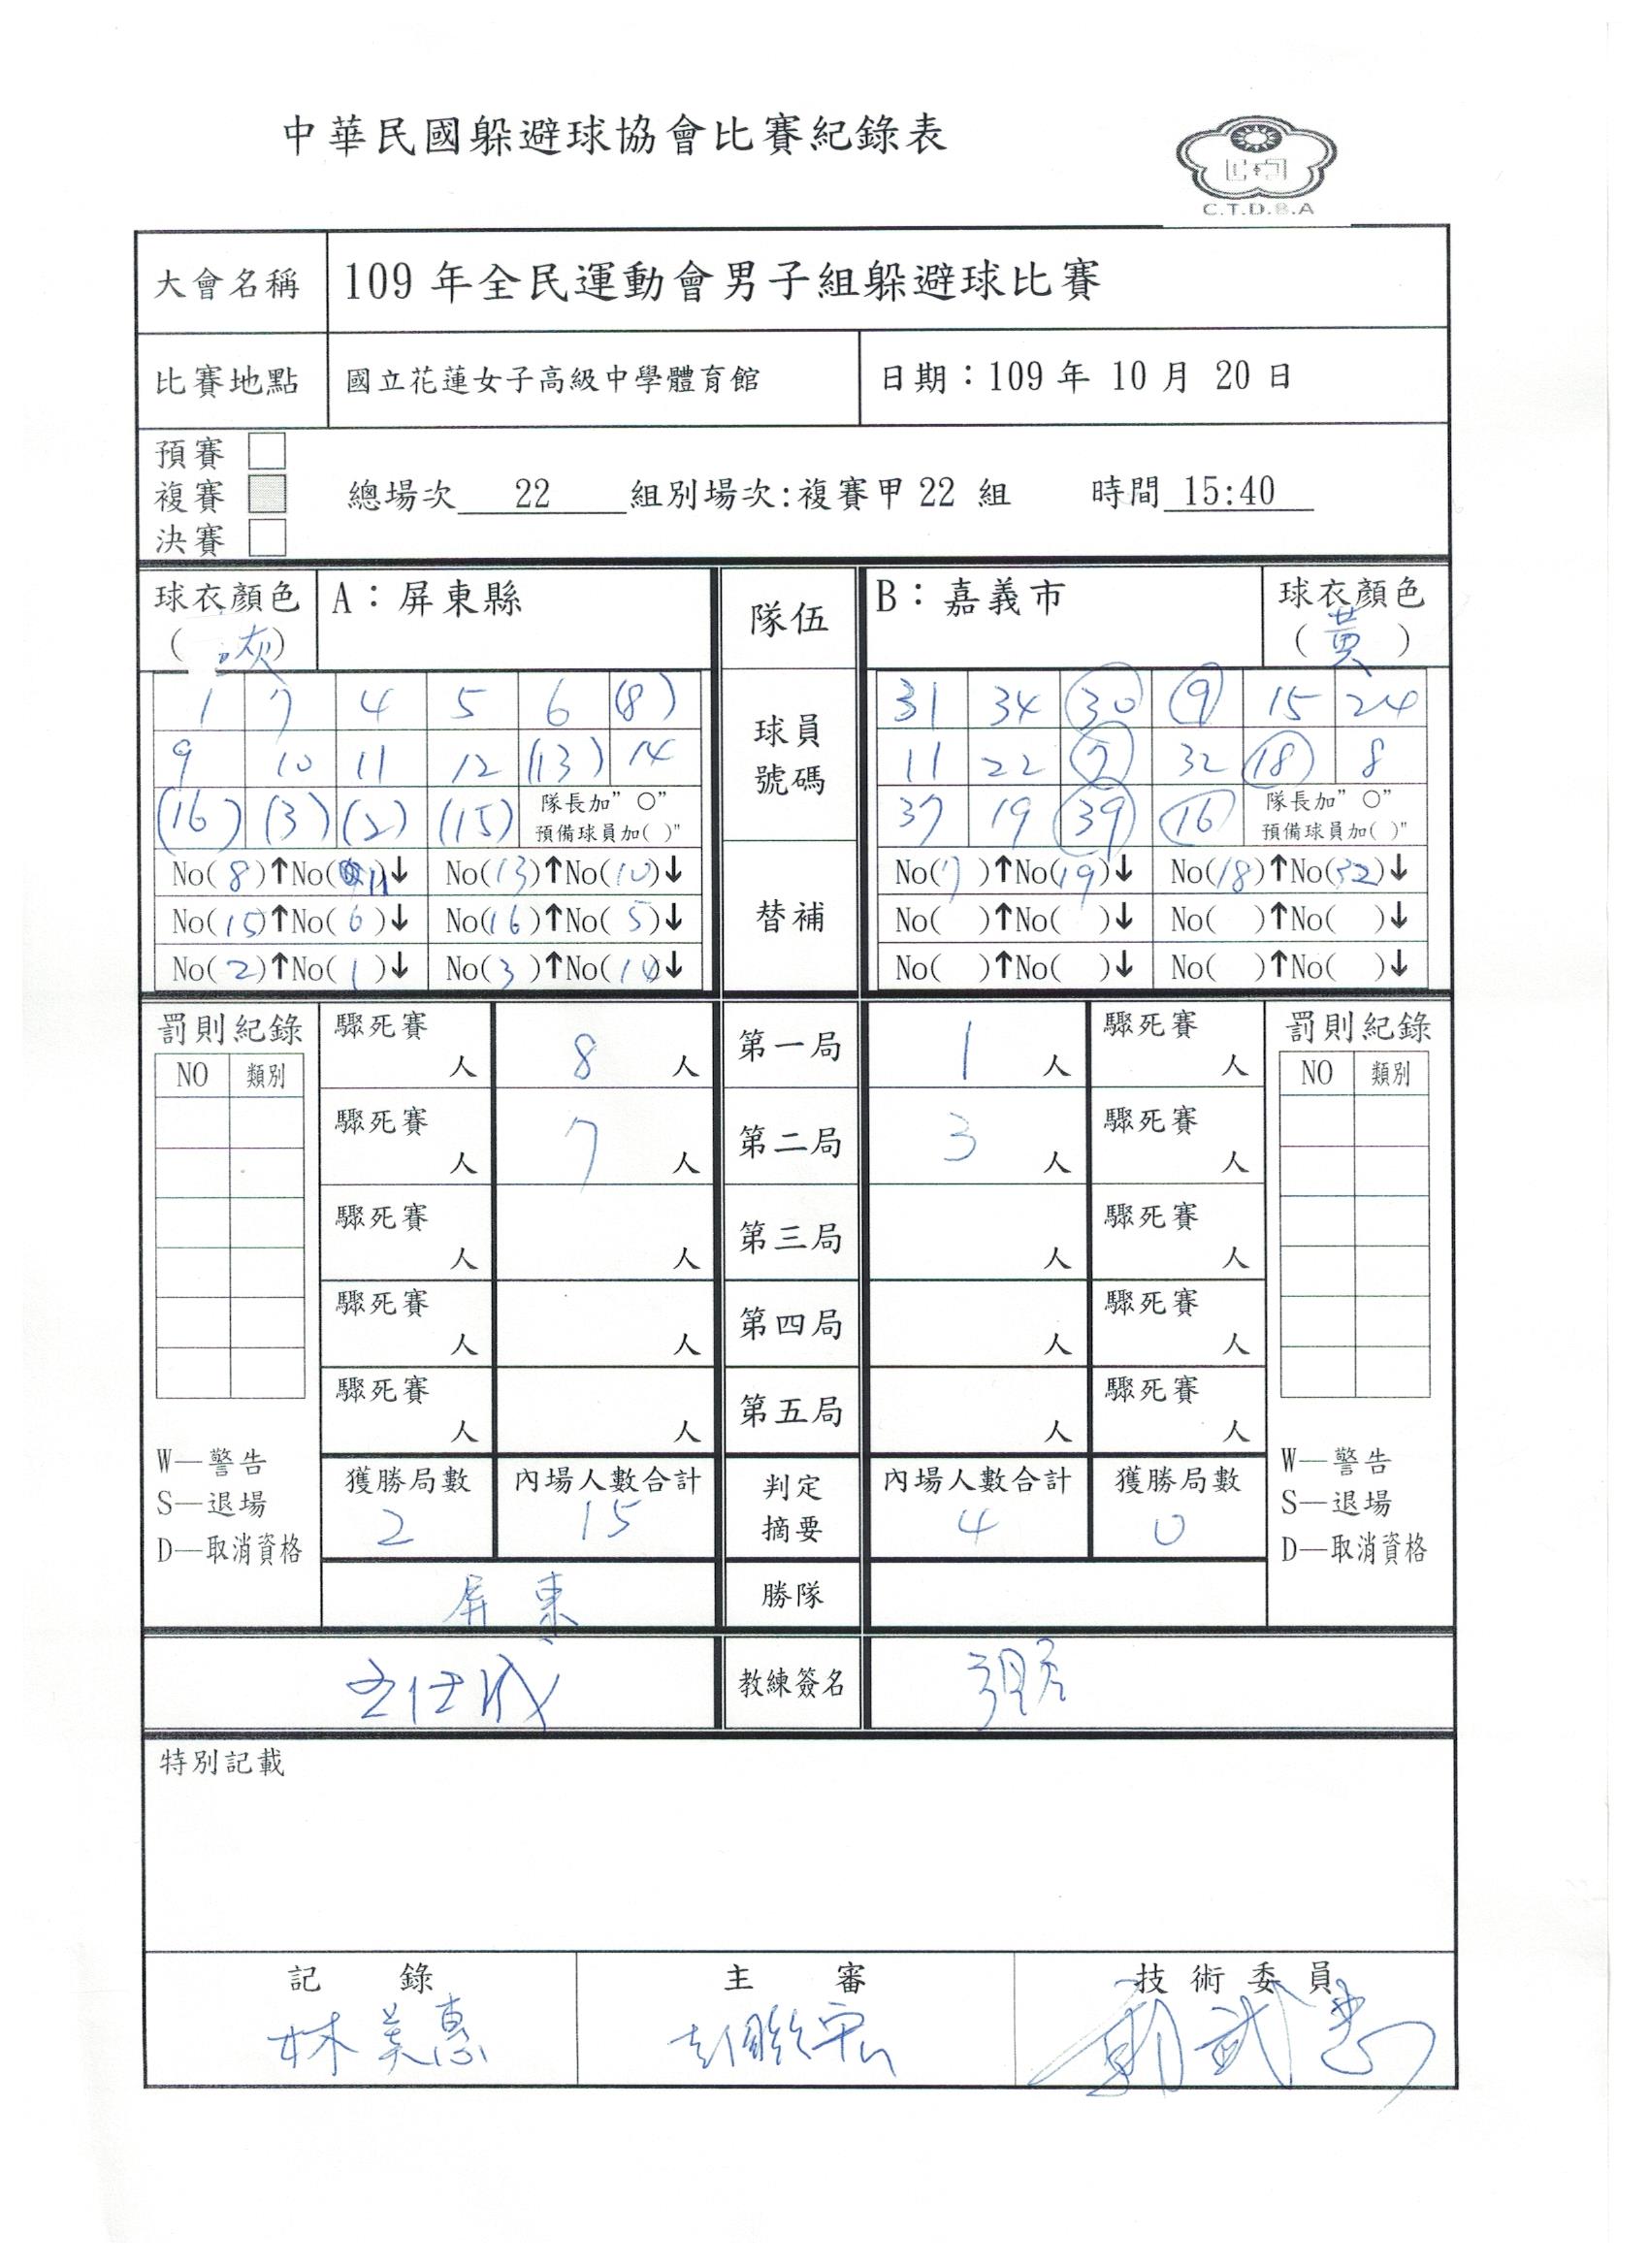 中華民國躲避球協會比賽紀錄表
C.T.D.B.A
大會名稱 109 年全民運動會男子組躲避球比賽
比賽地點 國立花蓮女子高級中學體育館 日期：109 年 10 月 20 日
預賽
複賽 總場次 22 組別場次:複賽甲 22 組 時間 15:40
決賽
球衣顏色 A：屏東縣 隊伍 B：嘉義市 球衣顏色
(灰) (黃)
球員號碼
1 7 4 5 6 (8) 31 34 30 9 15 24
9 10 11 12 (13) 14 11 22 7 32 18 8
(16) (3) (2) (15) 隊長加"○" 37 19 39 16 隊長加"○"
預備球員加( )" 預備球員加( )"
替補
No(8)↑No(11)↓ No(13)↑No(10)↓ No(7)↑No(19)↓ No(18)↑No(32)↓
No(15)↑No(6)↓ No(16)↑No(5)↓ No( )↑No( )↓ No( )↑No( )↓
No(2)↑No(1)↓ No(3)↑No( )↓ No( )↑No( )↓ No( )↑No( )↓
罰則紀錄 驟死賽 人 8 人 第一局 1 人 驟死賽 人 罰則紀錄
NO 類別 NO 類別
驟死賽 人 7 人 第二局 3 人 驟死賽 人
驟死賽 人 人 第三局 人 驟死賽 人
驟死賽 人 人 第四局 人 驟死賽 人
驟死賽 人 人 第五局 人 驟死賽 人
W—警告 W—警告
S—退場 S—退場
D—取消資格 D—取消資格
獲勝局數 內場人數合計 判定摘要 內場人數合計 獲勝局數
2 15 4 0
屏東 勝隊
教練簽名
特別記載
記錄 主審 技術委員
林美惠